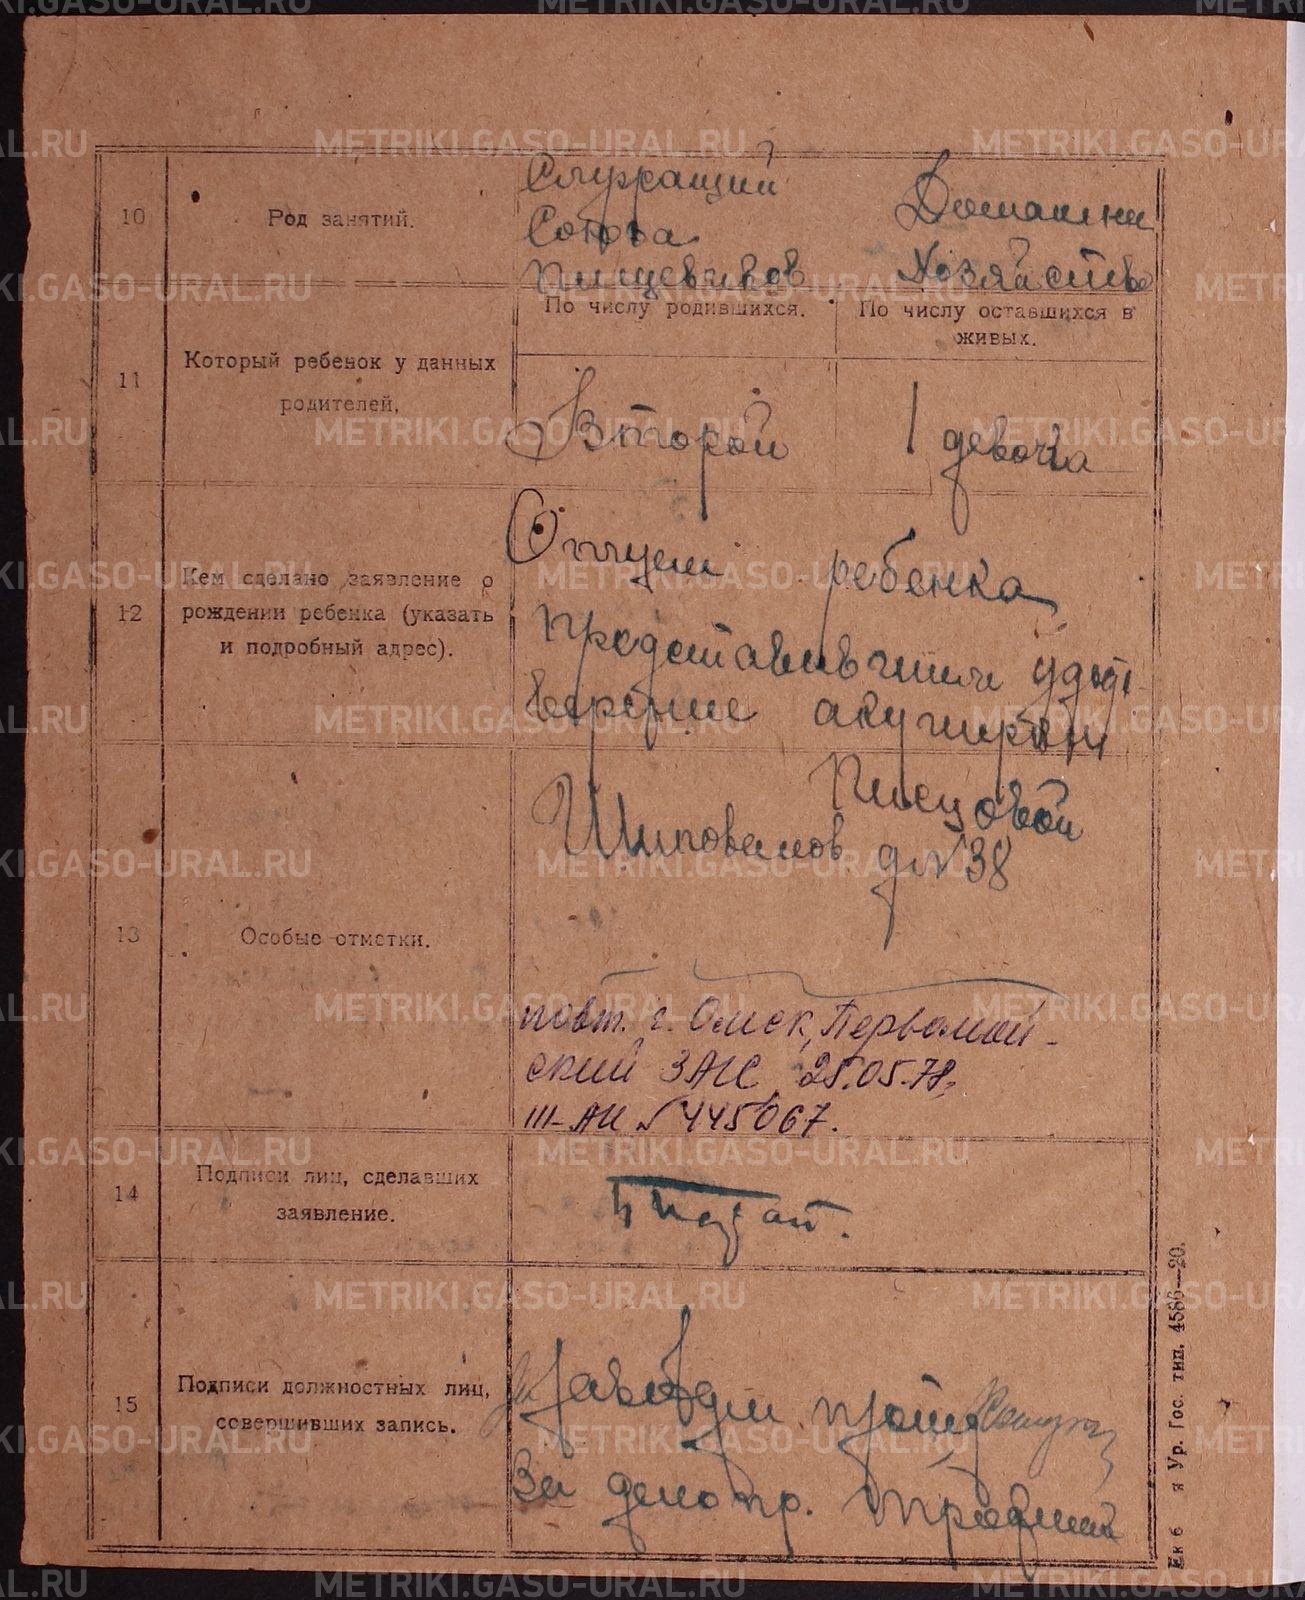 METRIKI.GASO-URAL.RU
10
Род занятий.
Служащий
Союза
Пищевиков
Домашни
Хозяйство
11
Который ребенок у данных
родителей,
По числу родившихся.
По числу оставшихся в
живых.
Второй
1 девочка
12
Кем сделано заявление о
рождении ребенка (указать
и подробный адрес).
Отцем ребенка
представившим удост
верение акушерки
Писцовой
Шиповалов д №38
13
Особые отметки.
повт. г. Омск, Первомай-
ский ЗАГС 25.05.78,
III-АИ № 445067.
14
Подписи лиц, сделавших
заявление.
15
Подписи должностных лиц,
совершивших запись.
Завед
За делопр.
Ек б я Ур. Гос. тип. 4586—20.